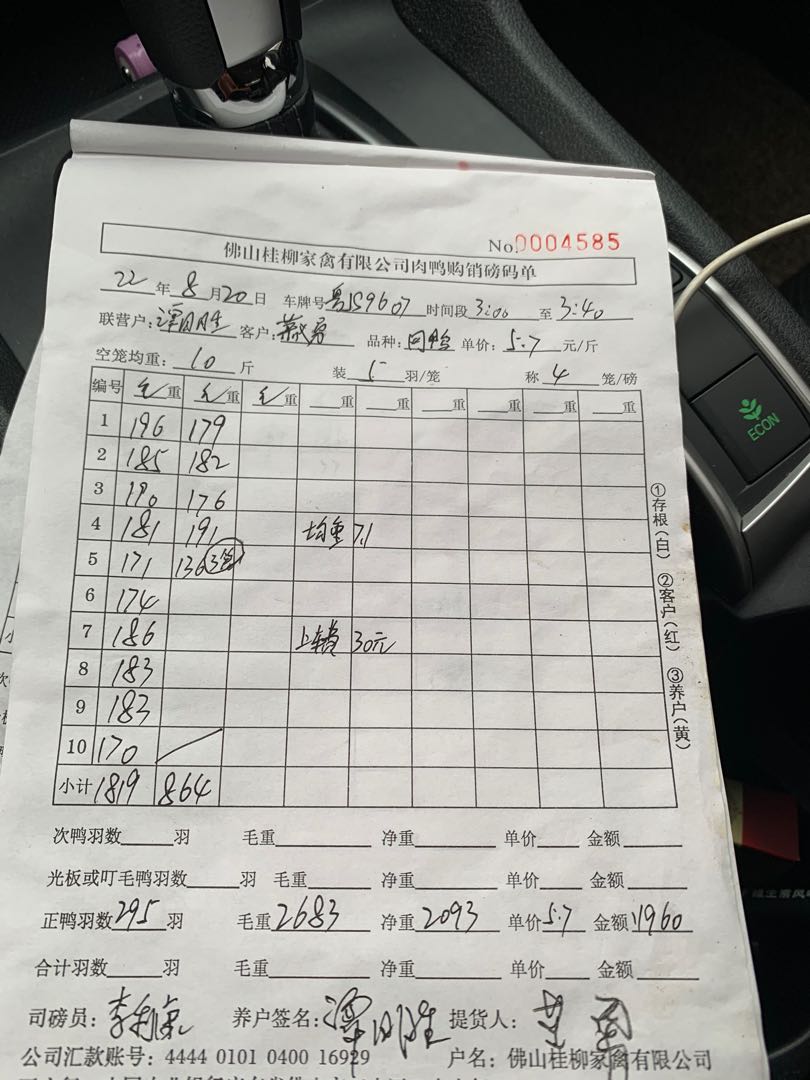 No.0004585
佛山桂柳家禽有限公司肉鸭购销磅码单
22年8月20日 车牌号 时间段3:00至3:40
联营户: 客户: 品种: 单价:5.7元/斤
空笼均重:10斤 装5羽/笼 称4笼/磅
编号 毛重 毛重 毛重 重 重 重 重 重
1 196 179
2 185 182
3 190 176
4 181 191 均重 7.1
5 171 136 3笼
6 174
7 186 上车费 30元
8 183
9 183
10 170
小计 1819 864
①存根(白) ②客户(红) ③养户(黄)
次鸭羽数 羽 毛重 净重 单价 金额
光板或叮毛鸭羽数 羽 毛重 净重 单价 金额
正鸭羽数295羽 毛重2683 净重2093 单价5.7 金额11960
合计羽数 羽 毛重 净重 单价 金额
司磅员: 养户签名: 提货人:
公司汇款账号:4444 0101 0400 16929 户名:佛山桂柳家禽有限公司
ECON